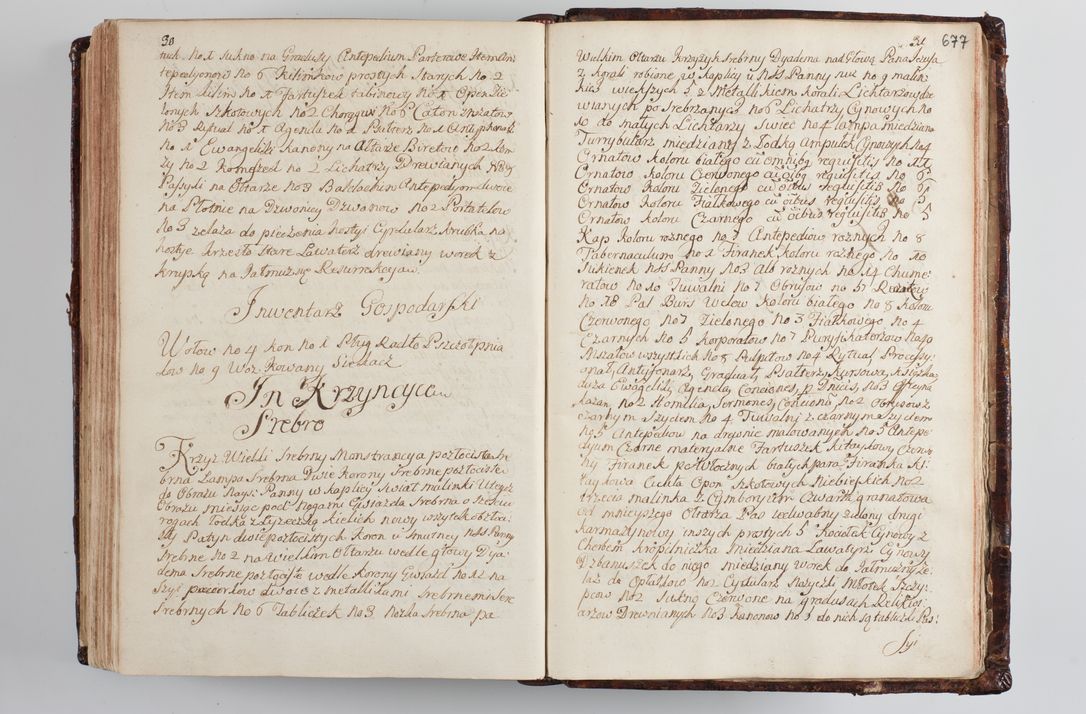 30
tuch No 1 sukno na Gradusy Antepedium Parterowe Item An
tepedyonow No 6 Kilimkow prostych Starych No 2
Item kilim No 1 Fartuszek tabinowy No 1 Opon Zie
lonych Szkotowych No 2 Chorągwi No 6 Caton
No 3 Rytuał No 1 Agenda No 1 Psałterz No 1 Antyphonarz
No 1 Ewangeliczki Kanony na Ołtarze Biretow No 2 Kom
zy No 2 Kornefzed No 2 Lichatrzy Drewianych No 9
Passyli na Ołtarze No 3 Baldachin Antepedyom dwoie
na Płotnie na Dzwonicy Dzwonow No 2 Portatelow
No 3 zelaza do pieczenia hostyi Cyrdularz Srubka na
hostye Krzesło stare Lawaterz drewiany worek z
krupką na Jałmuznę Resurrekcya
Inwentarz Gospodarski
Wołow No 4 kon No 1 Pług Radło Pszczołpnia
kow No 9 Woz Kowany Sieczkarz
In Krzyncyca
Srebro
Krzyz Wielki Srebrny Monstrancya pozłocista Sre
brna Lampa Srebrna Dwie Korony Srebrne pozłociste
do Obrazu Nays: Panny w kaplicy Swiat malinki U tegoż
Obrazu miesiąc pod Nogami Gwiazda Srebrna o sześciu
rogach Todka z Łyżeczką kielich nowy wszytek obzłoci
sty Patyn dwie pozłocistych Koron u Smutney NSS Panny
Srebrne No 2 na Wielkim Ołtarzu wedle głowy Dya
dema Srebrne pozłociste wedle Korony Gwiazd No 12 na
Szyi paciorkow dwoie z metallikami Srebrnemi Serc
Srebrnych No 6 Tabliczek No 3 Nozka Srebrna pa
31 677
Wielkim Ołtarzu Krzyżyk Srebrny Dyadema nad Głową Pana Jezusa
z korali robione w kaplicy u NSS Panny No 9 malin
kich wiekszych 5 z Metallikiem Korali Lichtarzow dre
wianych po Srebrzanych No 6 Lichatrzy Cynowych No
10 do małych Lichtarzy Swiec No 4 lampa miedziana
Turrybularz miedziany z Lodką Ampułek Cynowych No 4
Ornatow koloru białego cũ omnibg requisitis No 11
Ornatow koloru Czerwonego cũ oibg requisitis No 6
Ornatow koloru Zielonego cũ oibus requisitis No 6
Ornatow koloru Fiałkowego cũ oibus requisitis No 5
Ornatow koloru Czarnego cũ oibus requisitis No 5
Kap koloru roznego No 7 Antepediow roznych No 8
Tabernaculum No 1 Firanek koloru rożnego No 10
Sukienek NSS Panny No 3 Alb roznych No 14 Chume
ratow No 10 Tuwalni No 7 Obrusow No 57
No 18 Pal Burs Welow koloru białego No 8 koloru
Czerwonego No 7 Zielonego No 3 Fiałkowego No 4
Czarnych No 5 Korporałow No 7 Puryfikaterzow No 20
Mszałow wszystkich No 8 Pulpitow No 4 Rytuał Processy
onał, Antyfonarz, Graduał, Psałterz, Kursowa, Książka
duża Ewagelii, Agenda, Conciones, p Dnicis, No 3 Officyna
kazan No 2 Homilia, Sermones, Centuona No 2 Obrusow z
czarnym szyciem No 4 Tuwalny z czarnym szyciem
No 5 Antepediow na drewnie malowanych No 5 Antepe
dyum Czarne materyalne Fartuszek kitaykowy Czerwo
ny Firanek połtłocznych białych para Firanka ki
taykowa Cudła Opon szkotowych niebieskich No 2
trzecia malinka z Cymboryi tr Czwarta granatowa
od mnieyszego Ołtarza Pas iedwabny zielony drugi
karmazynowy inszych prostych 5 Kociełek Cynowy z
Chrobem kropelniczka miedziana Lawatyrz Cynowy
Dzbanuszek do niego miedziany worek do Jałmuzny że
laz do Opłatkow No 2 Cyrdularz Nazyczki Młotek Szczy
pcow No 2 Sukno Czerwone na gradusach Relikwi
arzow Drewnianych No 3 Kanonow No 5 do nich są tabliczki Pas:
syi